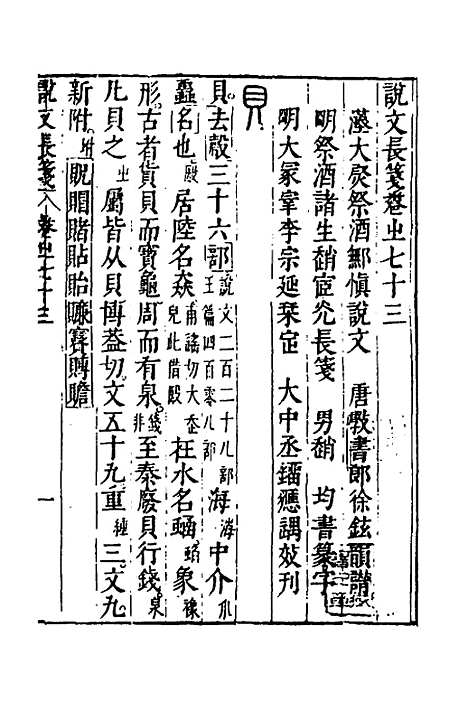 說文長箋卷㞢七十三
漢大尉祭酒鄦愼說文　唐校書郎徐鉉韻譜
明祭酒諸生趙宧光長箋　男　均書篆字
明大冢宰李宗延栞定　大中丞　效刊
貝
貝去殼三十六部說文二百二十八部玉篇四百零八部海海中介
蟲名也居陸名猋在水名蜬象
形古者貨貝而寶龜周而有泉至秦廢貝行錢
凡貝之㞢屬皆从貝博蓋切文五十九重三文九
新附貺賵賭貼貽賺賽賻贍
說文長箋卷㞢七十三
一